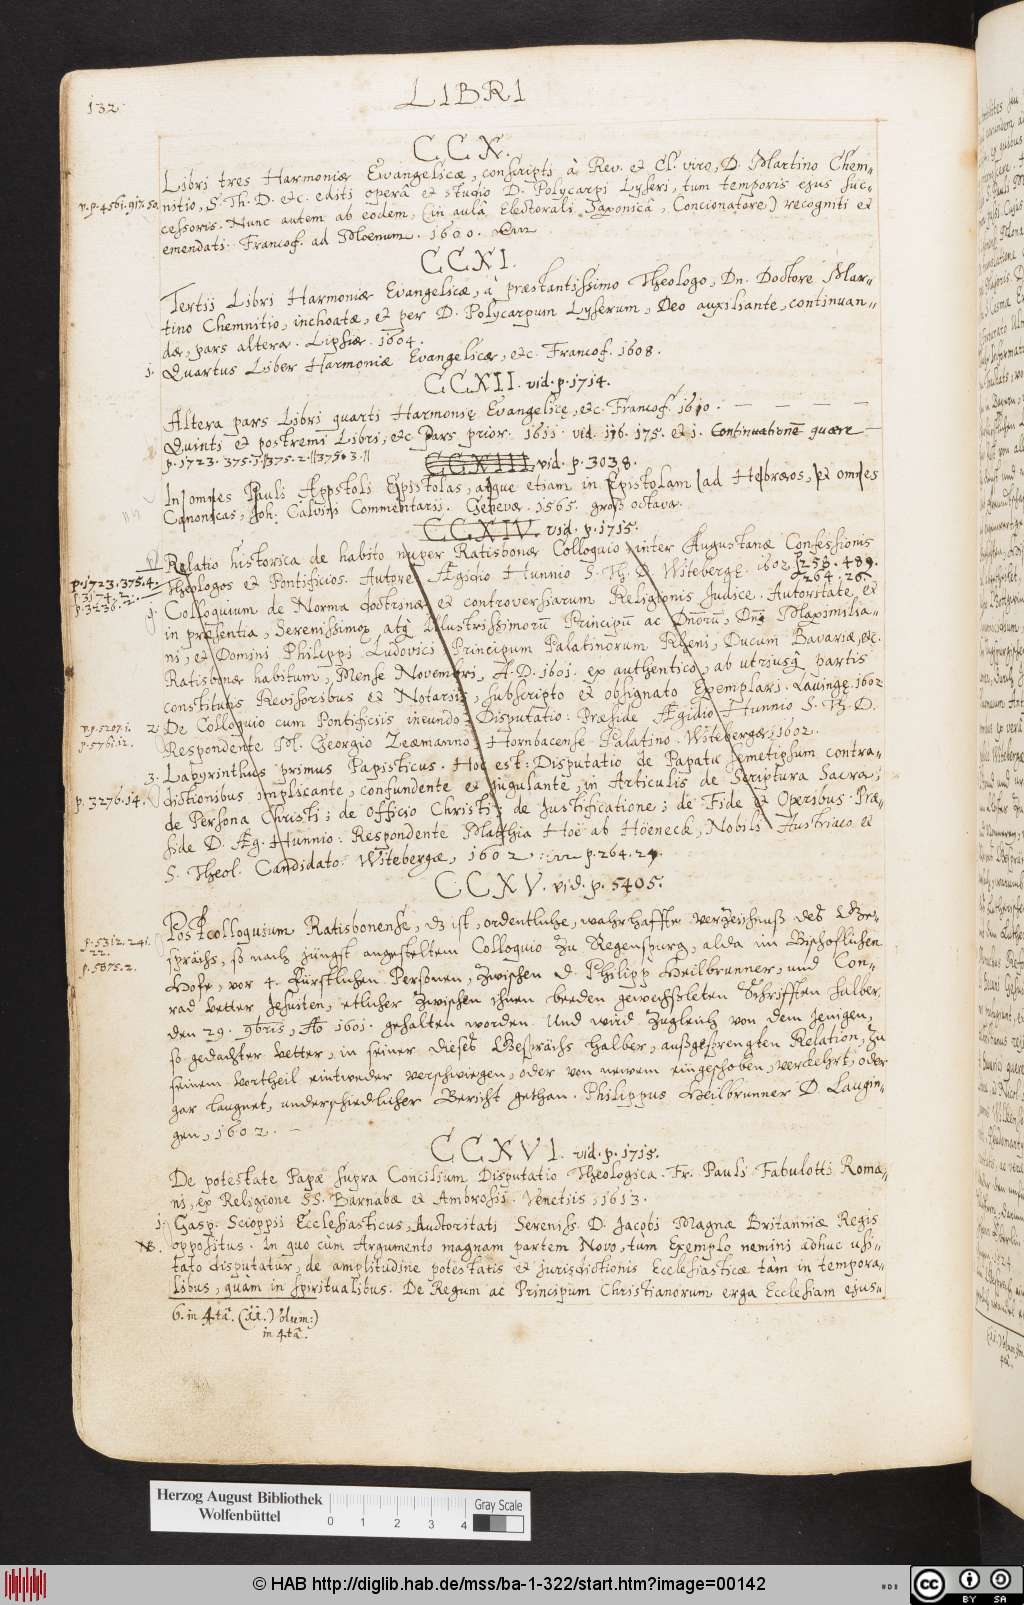 132
LIBRI
CCX.
Libri tres Harmoniæ Evangelicæ, conscripti, à Rev. et Cl. viro, D. Martino Chem-
v. p. 4561. 917. 50. nitio, S. Th. D. etc. editi operâ et studio D. Polycarpi Lyseri, tum temporis ejus suc-
cessoris. Nunc autem ab eodem, (in aulâ Electorali Saxonicâ, Concionatore) recogniti et
emendati. Francof. ad Moenum. 1600.
CCXI.
Tertii Libri Harmoniæ Evangelicæ, à præstantissimo Theologo, Dn. Doctore Mar-
tino Chemnitio, inchoatæ, et per D. Polycarpum Lyserum, Deo auxiliante, continuan-
dæ, pars altera. Lipsiæ. 1604.
1. Quartus Liber Harmoniæ Evangelicæ, etc. Francof. 1608.
CCXII. vid. p. 1714.
Altera pars Libri quarti Harmonię Evangelicę, etc. Francof. 1610.
Quinti et postremi Libri, etc. Pars prior. 1611. vid. 176. 175. et 1. Continuationē quære
p. 1723. 375. 1. 375. 2. 375. 3.
CCXIII. vid. p. 3038.
In omnes Pauli Apostoli Epistolas, atque etiam in Epistolam ad Hebræos, et omnes
Canonicas, Joh. Calvini Commentarii. Genevæ. 1565. groß octava.
CCXIV. vid. p. 1715.
Relatio historica de habito nuper Ratisbonæ Colloquio inter Augustanæ Confessionis
p. 1723. 375. 4. Theologos et Pontificios. Autore Ægidio Hunnio S. Th. D. Witebergę. 1602. 258. 489.
p. 3174. 2. 264. 26.
p. 3236. 2.
1. Colloquium de Norma doctrinæ et controversiarum Religionis Judice. Autoritate, et
in præsentia, Serenissimor. atq; Illustrissimorū Principū ac Dn̄orū, Dn̄i Maximilia-
ni, et Domini Philippi Ludovici Principum Palatinorum Rheni, Ducum Bavariæ, etc.
Ratisbonæ habitum, Mense Novembri, A. D. 1601. ex authentico, ab utriusq; partis
constitutis Revisoribus et Notariis, subscripto et obsignato Exemplari. Lauingę. 1602
v. p. 5207. 1. 2. De Colloquio cum Pontificiis ineundo Disputatio: Præside Ægidio Hunnio S. Th. D.
p. 5761. 12. Respondente M. Georgio Zeæmanno, Hornbacense Palatino. Witebergæ, 1602.
3. Labyrinthus primus Papisticus. Hoc est: Disputatio de Papatu semetipsum contra-
p. 3276. 14. dictionibus implicante, confundente et jugulante, in Articulis de Scriptura Sacra;
de Persona Christi; de Officio Christi; de Justificatione; de Fide et Operibus. Præ-
side D. Æg. Hunnio: Respondente Matthia Hoë ab Höeneck, Nobili Austriaco et
S. Theol. Candidato. Witebergæ, 1602. p. 264. 24.
CCXV. vid. p. 5405.
Postcolloquium Ratisbonense, dz ist, ordentliche, wahrhaffte verzeichnuß deß Ge-
p. 5312. 241. 22. sprächs, so nach jüngst angesteltem Colloquio zu Regenspurg, alda im Bischoflichen
p. 5875. 2. Hofe, vor 4. Fürstlichen Personen, zwischen D. Philipp Heilbrunner, und Con-
rad Vetter Jesuiten, etlicher zwischen ihnen beeden gewechßleten Schrifften halber,
den 29. 9bris, Ao 1601. gehalten worden. Und wird zugleich von dem jenigen,
so gedachter Vetter, in seiner dieses Gesprächs halber, außgesprengten Relation, zu
seinem Vortheil eintweder verschwiegen, oder von newem eingeschoben, verkehrt, oder
gar laugnet, underschiedlicher Bericht gethan. Philippus Heilbrunner D. Laugin-
gen, 1602.
CCXVI. vid. p. 1715.
De potestate Papæ supra Concilium Disputatio Theologica. Fr. Pauli Fabulotti Roma-
ni, ex Religione SS. Barnabæ et Ambrosii. Venetiis, 1613.
1. Gasp. Scioppii Ecclesiasticus, Auctoritati Sereniss. D. Jacobi Magnæ Britanniæ Regis
NB. oppositus. In quo cùm Argumento magnam partem Novo, tum Exemplo nemini adhuc usi-
tato disputatur, de amplitudine potestatis et jurisdictionis Ecclesiasticæ tàm in tempora-
libus, quàm in spiritualibus. De Regum ac Principum Christianorum erga Ecclesiam ejus-
6. in 4tâ. (ii.) blum:)
in 4tâ.
Herzog August Bibliothek
Wolfenbüttel
0 1 2 3 4
Gray Scale
© HAB http://diglib.hab.de/mss/ba-1-322/start.htm?image=00142
CC BY SA